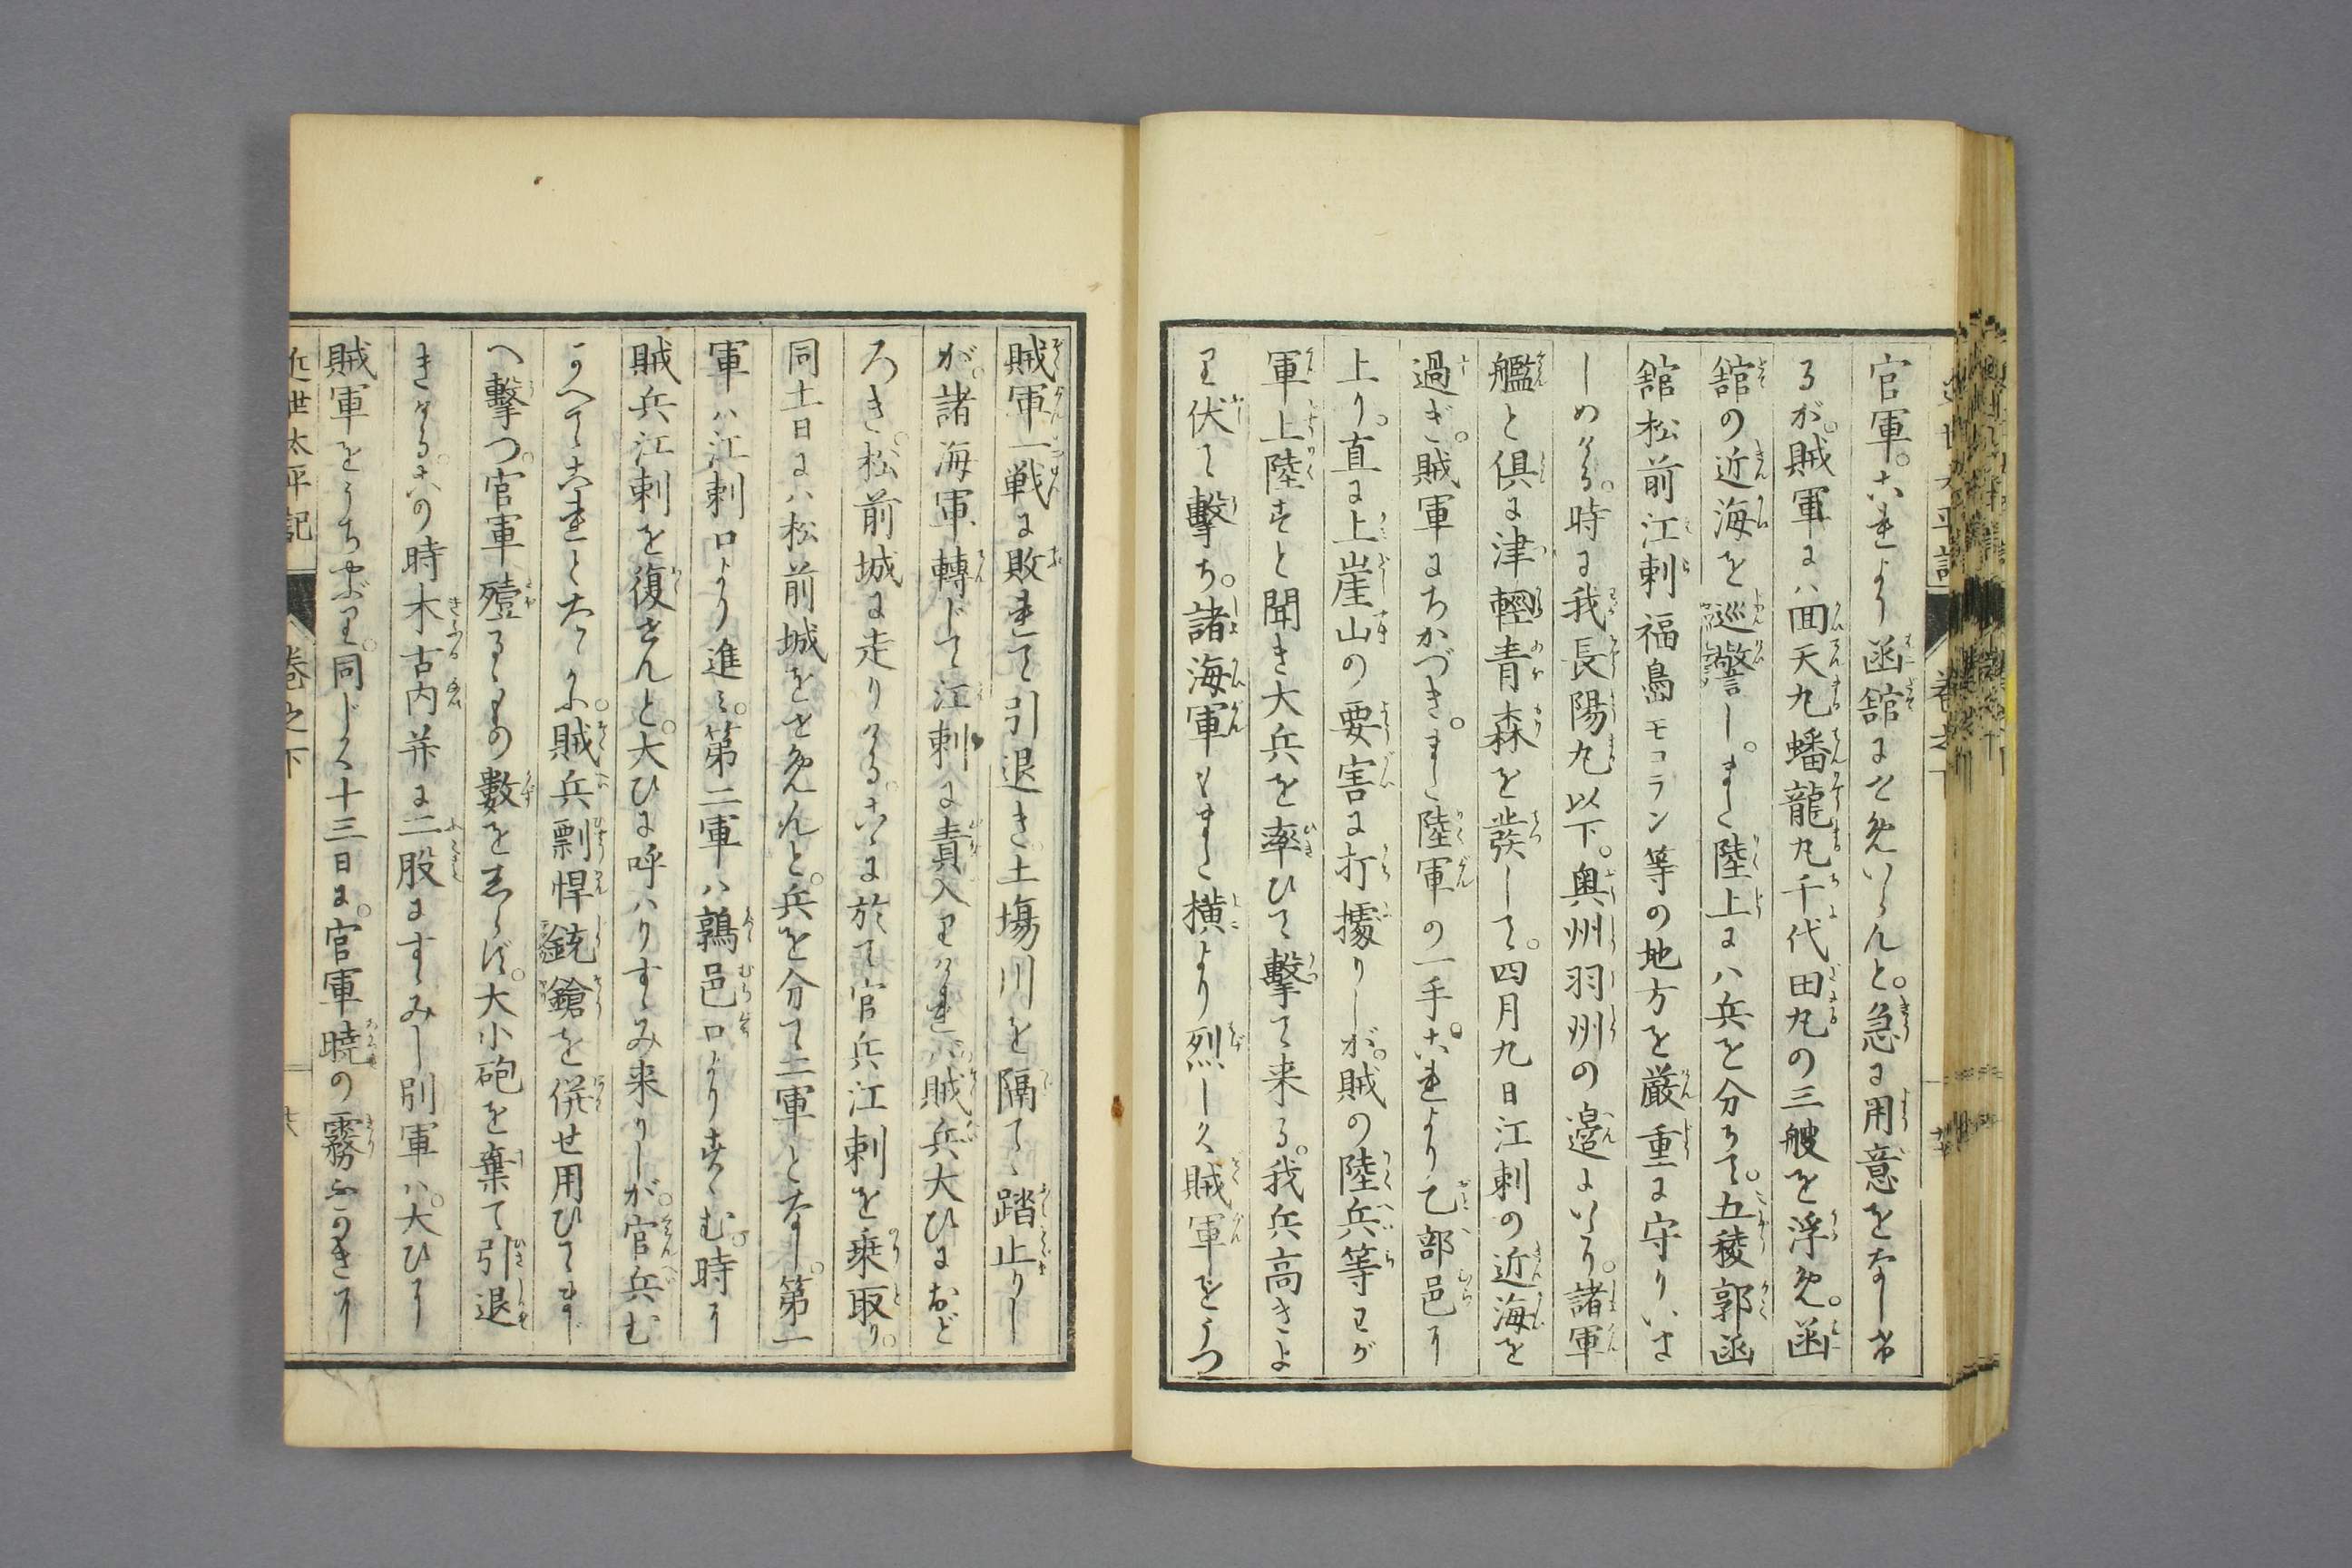 官軍。これより函舘にせめいらんと。急に用意をなしけ
るが。賊軍には回天丸蟠龍丸千代田丸の三艘を浮め。函
舘の近海を巡警し。また陸上には兵を分ちて。五稜郭函
舘松前江刺福島モコラン等の地方を厳重に守りいさ
しめける。時に我長陽丸以下。奥州羽州の邉よりいたり。諸軍
艦と倶に津輕青森を発して。四月九日江刺の近海を
過ぎ。賊軍にちかづき。また陸軍の一手。これより乙部邑に
上り。直に上崖山の要害に打據りしが。賊の陸兵等わが
軍上陸すと聞き大兵を率ひて撃て来る。我兵高きよ
り伏て撃ち。諸海軍もまた横より烈しく賊軍をうつ
賊軍一戦に敗れて引退き。土場川を隔てゝ踏止りし
が。諸海軍轉じて江刺に責入りければ。賊兵大ひにおど
ろき。松前城に走りける。こゝに於て官兵江刺を乗取り。
同十一日には松前城をせめんと。兵を分て二軍となし。第一
軍は江刺口より進み。第二軍は鶉邑口よりすゝむ。時に
賊兵江刺を復さんと。大ひに呼はりすゝみ来りしが。官兵む
かへてこれとたゝかふ。賊兵剽悍銃鎗を併せ用ひてまづ
へ撃つ。官軍殪るゝもの數をしらず。大小砲を棄て引退
きける。この時木古内并に二股にすゝみし別軍は。大ひに
賊軍をうちやぶり。同じく十三日に。官軍暁の霧ふかきに
近世太平記 巻之下